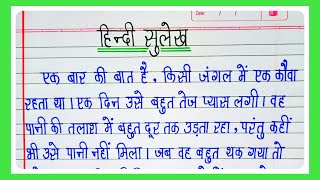 हिन्दी सुलेख
एक बार की बात है, किसी जंगल में एक कौवा
रहता था। एक दिन उसे बहुत तेज प्यास लगी। वह
पानी की तलाश में बहुत दूर तक उड़ता रहा, परंतु कहीं
भी उसे पानी नहीं मिला। जब वह बहुत थक गया तो